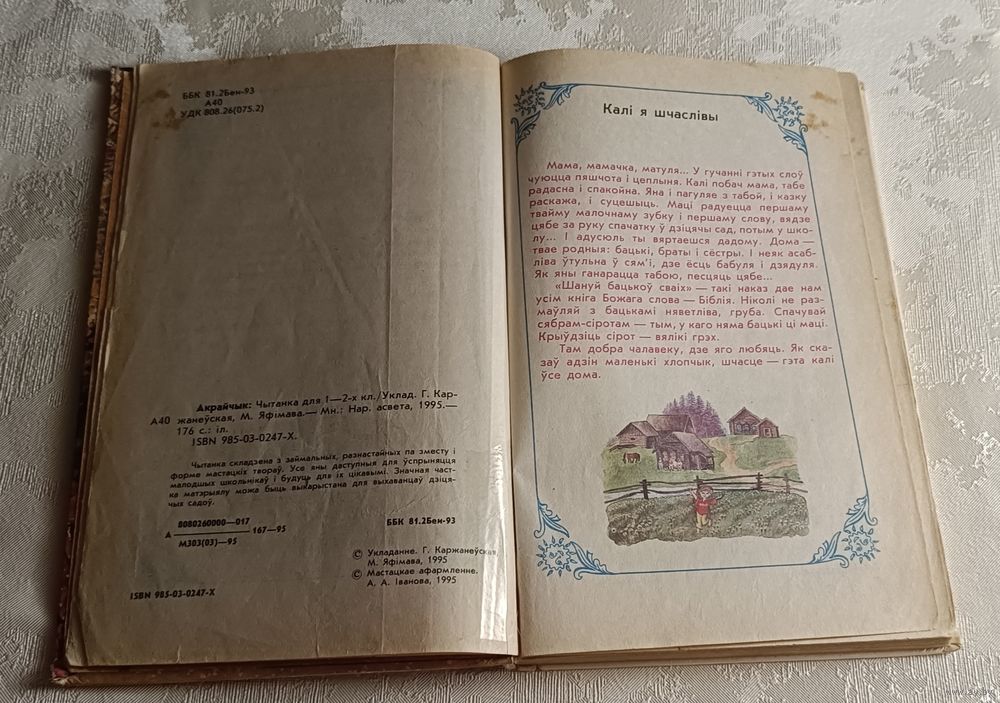 ББК 81.2Бен-93
А40
УДК 808.26(075.2)
Акрайчык: Чытанка для 1—2-х кл./Уклад. Г. Кар-
А40 жанеўская, М. Яфімава.— Мн.: Нар. асвета, 1995.—
176 с.: іл.
ISBN 985-03-0247-X.
Чытанка складзена з займальных, разнастайных па зместу і
форме мастацкіх твораў. Усе яны даступныя для ўспрыняцця
малодшых школьнікаў і будуць для іх цікавымі. Значная част-
ка матэрыялу можа быць выкарыстана для выхаванцаў дзіця-
чых садоў.
8080260000—017
А 167—95
М303(03)—95
ББК 81.2Бен-93
© Укладанне. Г. Каржанеўская,
М. Яфімава, 1995
© Мастацкае афармленне.
А. А. Іванова, 1995
ISBN 985-03-0247-X
Калі я шчаслівы
Мама, мамачка, матуля... У гучанні гэтых слоў
чуюцца пяшчота і цеплыня. Калі побач мама, табе
радасна і спакойна. Яна і пагуляе з табой, і казку
раскажа, і суцешыць. Маці радуецца першаму
твайму малочнаму зубку і першаму слову, вядзе
цябе за руку спачатку ў дзіцячы сад, потым у шко-
лу... І адусюль ты вяртаешся дадому. Дома —
твае родныя: бацькі, браты і сёстры. І неяк асаб-
ліва ўтульна ў сям'і, дзе ёсць бабуля і дзядуля.
Як яны ганарацца табою, песцяць цябе...
«Шануй бацькоў сваіх» — такі наказ дае нам
усім кніга Божага слова — Біблія. Ніколі не раз-
маўляй з бацькамі няветліва, груба. Спачувай
сябрам-сіротам — тым, у каго няма бацькі ці маці.
Крыўдзіць сірот — вялікі грэх.
Там добра чалавеку, дзе яго любяць. Як ска-
заў адзін маленькі хлопчык, шчасце — гэта калі
ўсе дома.